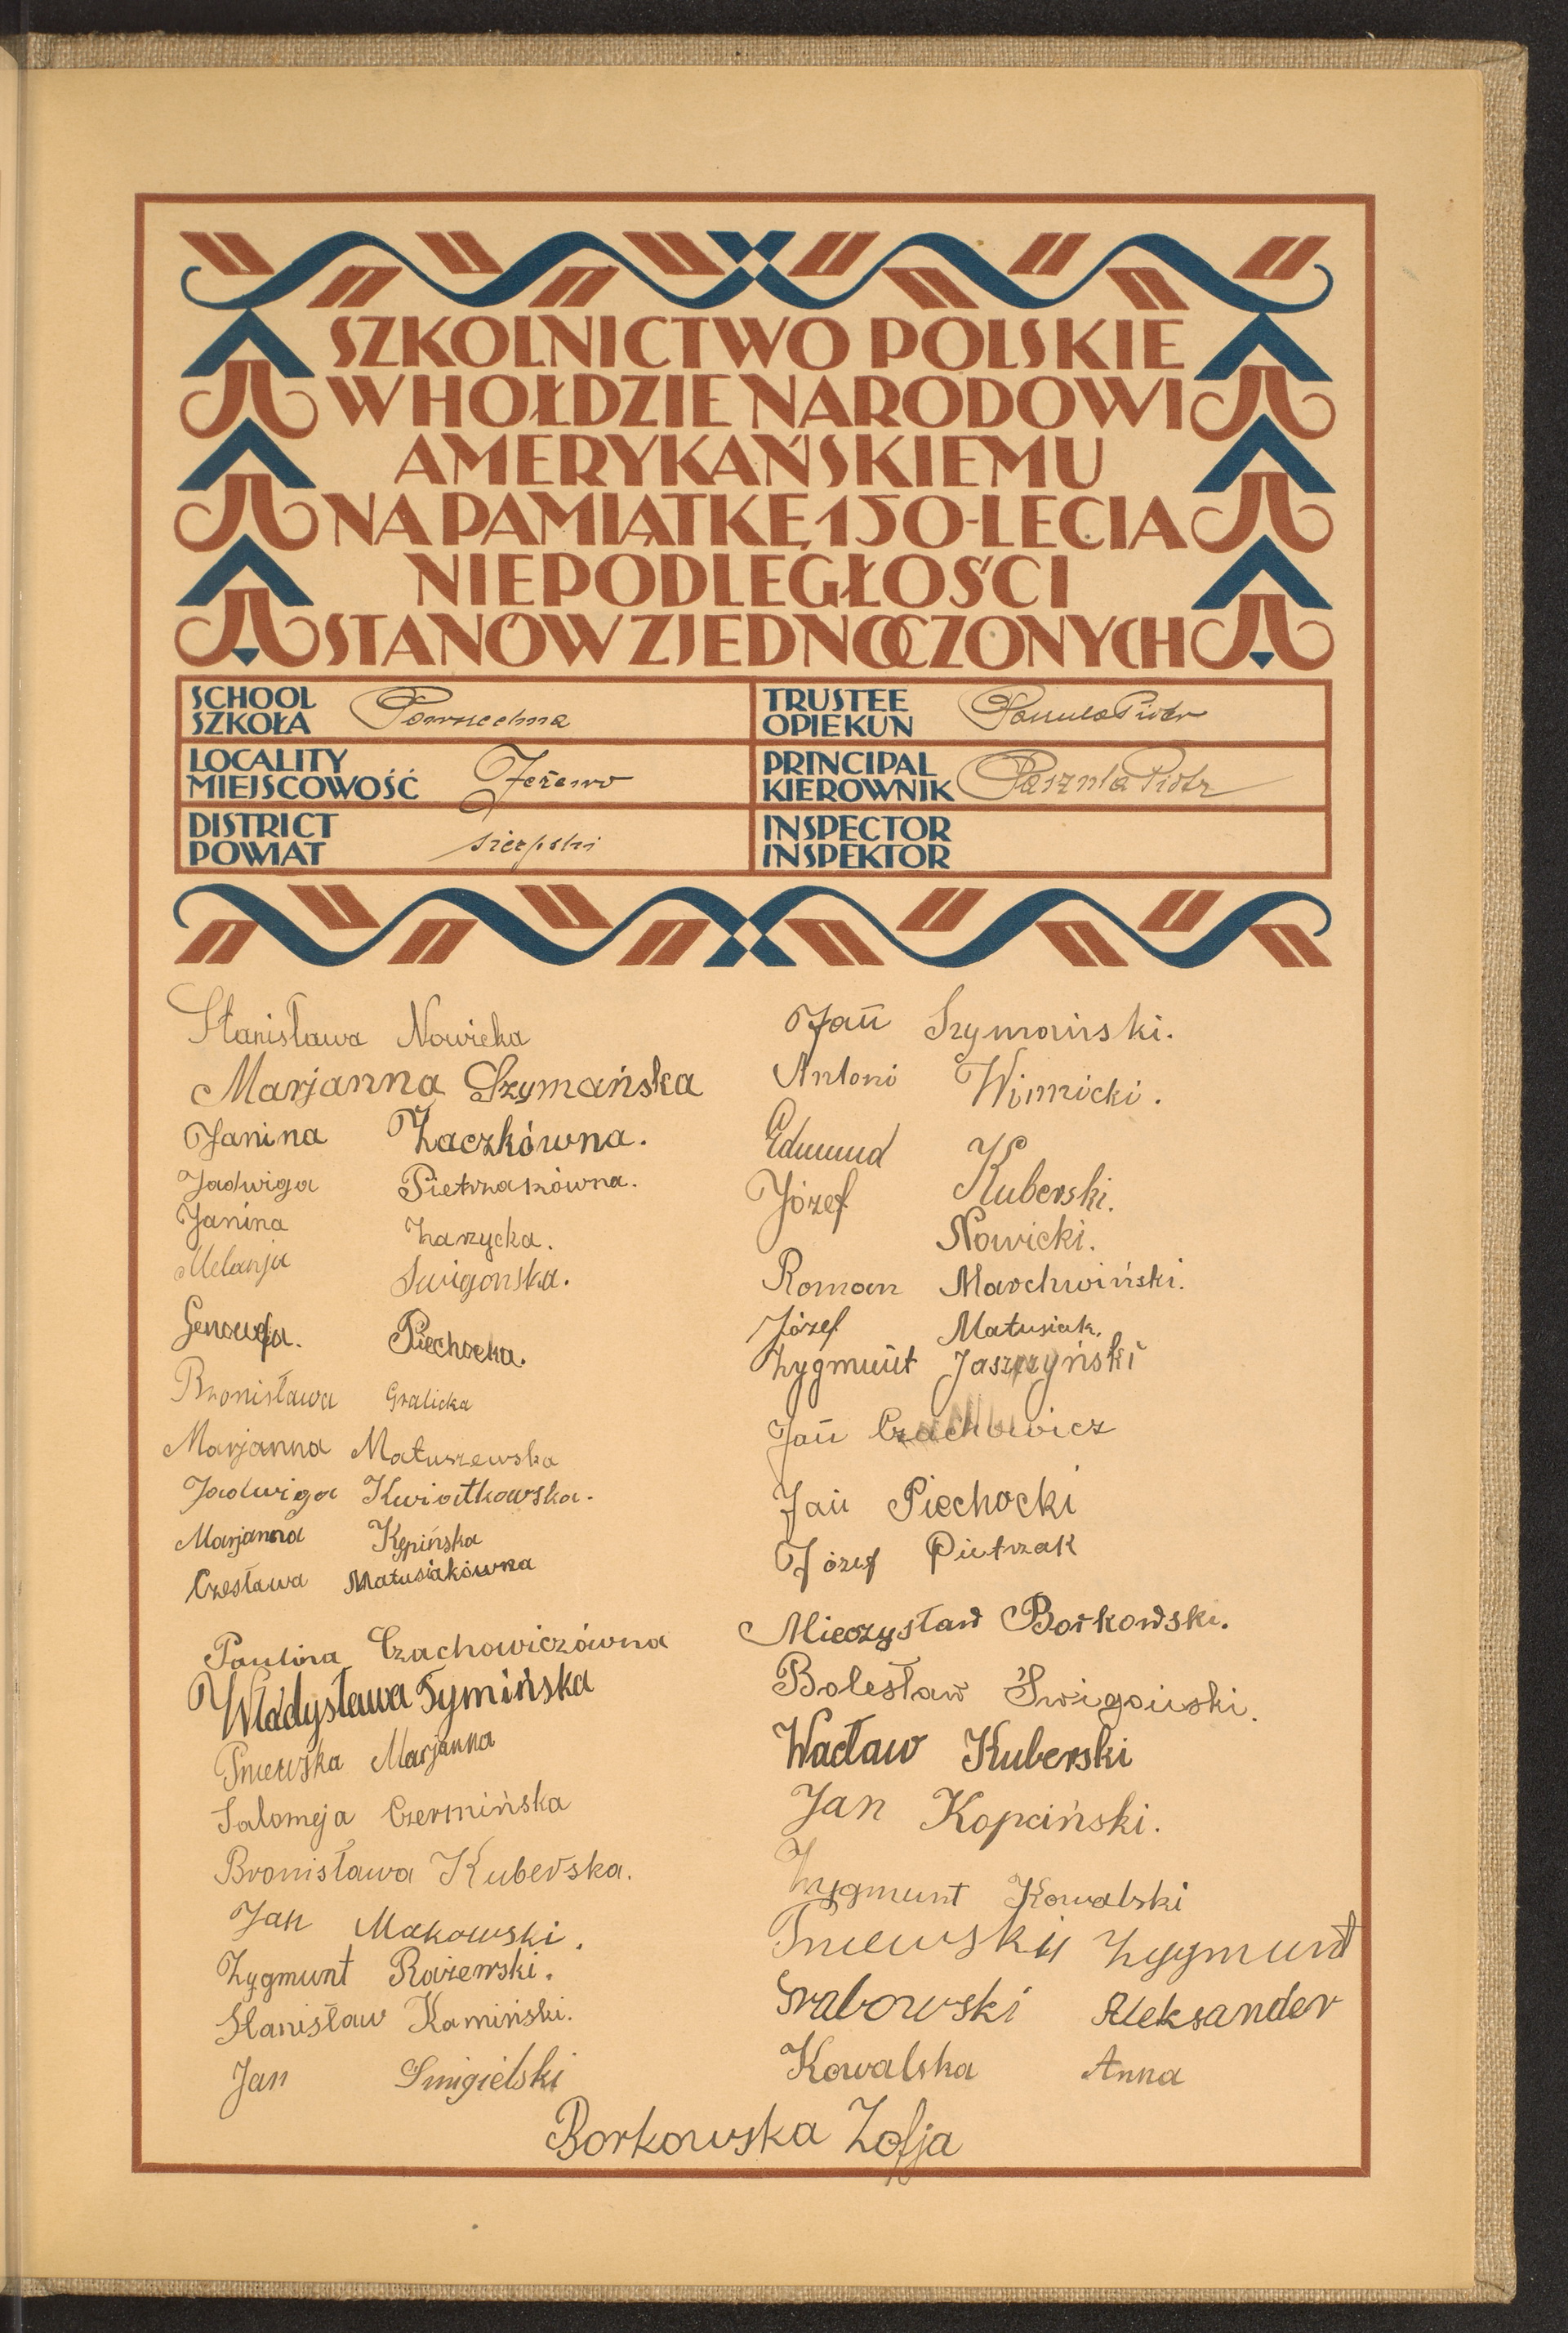 SZKOLNICTWO POLSKIE
W HOŁDZIE NARODOWI
AMERYKAŃSKIEMU
NA PAMIĄTKĘ 150-LECIA
NIEPODLEGŁOŚCI
STANÓW ZJEDNOCZONYCH
SCHOOL
SZKOŁA Powszechna
LOCALITY
MIEJSCOWOŚĆ Jeżewo
DISTRICT
POWIAT sierpski
TRUSTEE
OPIEKUN Piotr
PRINCIPAL
KIEROWNIK Piotr
INSPECTOR
INSPEKTOR
Stanisława Nowicka
Marjanna Szymańska
Janina Żaczkówna.
Jadwiga Pietrzakówna.
Janina Zarzycka.
Melanja Swigonska.
Genowefa. Piechocka.
Bronisława Gralicka
Marjanna Matuszewska
Jadwiga Kwiatkowska.
Marjanna Kępińska
Czesława Matusiakówna
Paulina Czachowiczówna
Władysława Tymińska
Pniewska Marjanna
Salomeja Czermińska
Bronisława Kuberska.
Jan Makowski.
Zygmunt Rażewski.
Stanisław Kamiński.
Jan Smigielski
Jan Szymański.
Antoni Winnicki.
Edmund Kuberski.
Józef Nowicki.
Roman Marchwiński.
Józef Matusiak.
Zygmunt Jaszczyński
Jan Czachowicz
Jan Piechocki
Józef Pietrzak
Mieczysław Borkowski.
Bolesław Świgoński.
Wacław Kuberski
Jan Kopciński.
Zygmunt Kowalski
Pniewski Zygmunt
Grabowski Aleksander
Kowalska Anna
Borkowska Zofja